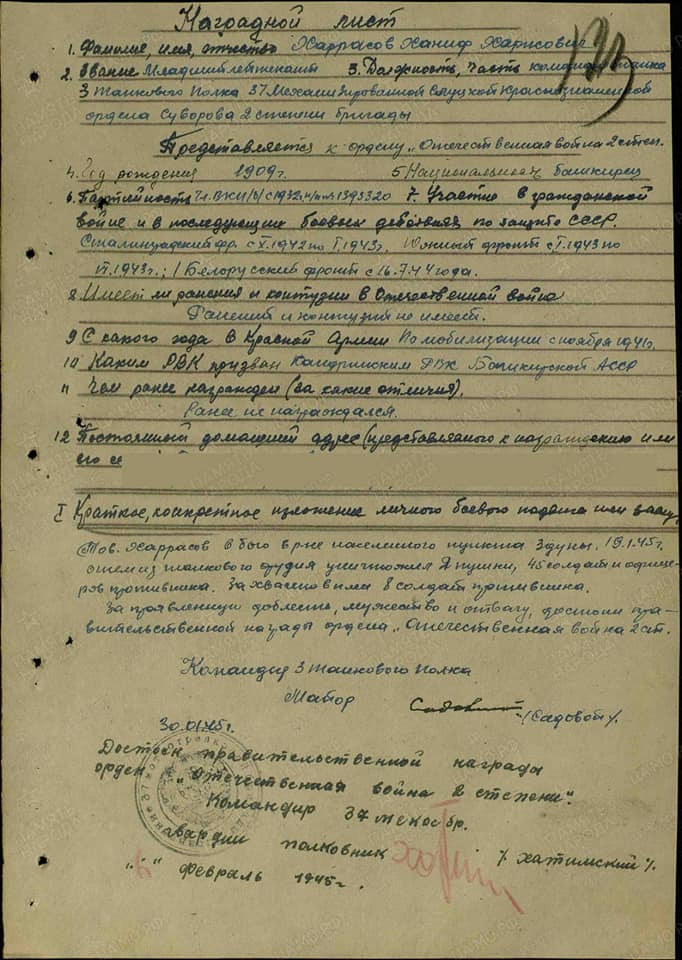 Наградной лист
1. Фамилия, имя, отчество Харрасов Ханиф Харисович
2. Звание Младший лейтенант 3. Должность, часть командир танка
3 танкового полка 37 Механизированной Слуцкой Краснознаменной
ордена Суворова 2 степени бригады
Представляется к ордену „Отечественная война 2 степ.
4. Год рождения 1909 г. 5 Национальность башкирец
6. Партийность Чл. ВКП/б/ с 1932, 1395320 7. Участие в гражданской
войне и в последующих боевых действиях по защите СССР.
Сталинградский фр. с X.1942 по I.1943 г. Южный фронт с I.1943 по
VI.1943 г.; 1 Белорусский фронт с 16.7.44 года.
8 Имеет ли ранения и контузии в Отечественной войне
Ранений и контузий не имеет.
9 С какого года в Красной Армии По мобилизации с ноября 1941 г.
10 Каким РВК призван Кандринским РВК Башкирской АССР
11 Чем ранее награжден (за какие отличия).
Ранее не награждался.
12 Постоянный домашний адрес (представляемого к награждению или
его се
I Краткое, конкретное изложение личного боевого подвига или заслуг
Тов. Харрасов в бою в р-не населенного пункта Здуны. 19.1.45 г.
огнем из танкового орудия уничтожил 2 пушки, 45 солдат и офице-
ров противника. Захвачено 8 солдат противника.
За проявленную доблесть, мужество и отвагу, достоин пра-
вительственной награды ордена „Отечественная война 2 ст.
Командир 3 танкового полка
Майор /Садовой/.
30.01.45 г.
Достоин правительственной награды
орден „Отечественная война 2 степени".
Командир 37 мехбр.
гвардии полковник /Хатимский/.
„6" февраль 1945 г.